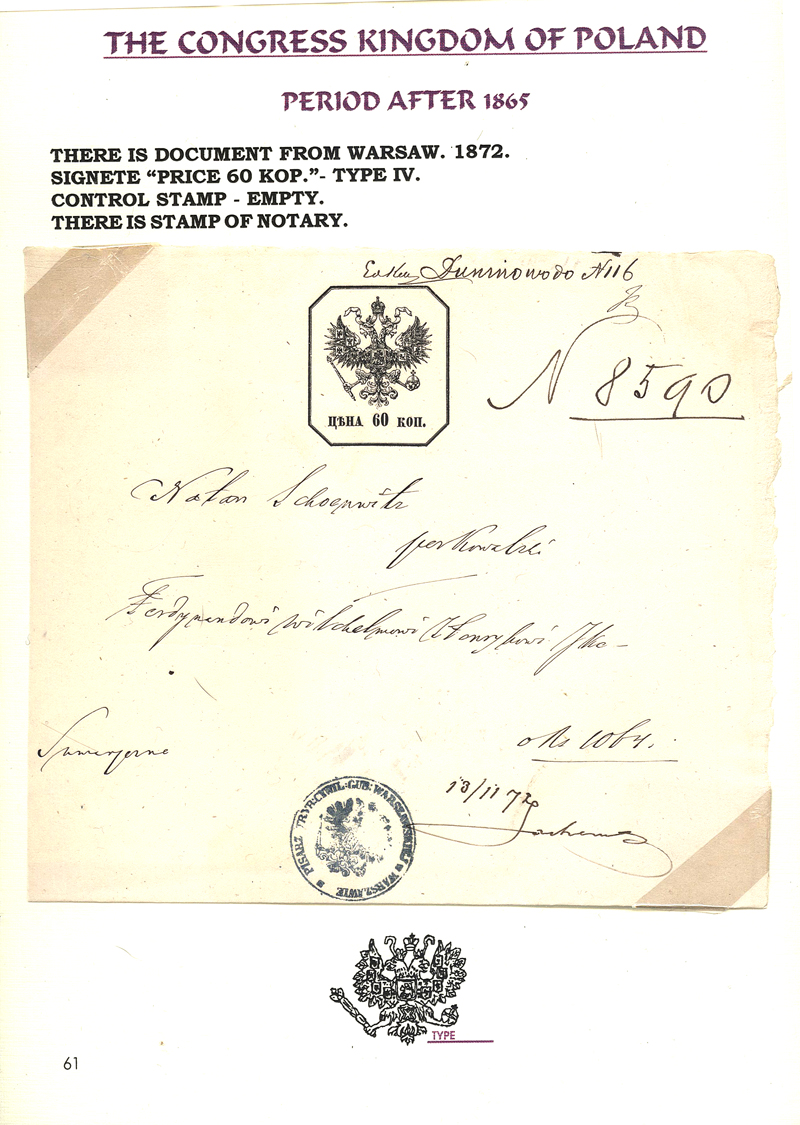 THE CONGRESS KINGDOM OF POLAND
PERIOD AFTER 1865
THERE IS DOCUMENT FROM WARSAW. 1872.
SIGNETE “PRICE 60 KOP.”- TYPE IV.
CONTROL STAMP - EMPTY.
THERE IS STAMP OF NOTARY.
N116
N 8590
ЦѢНА 60 КОП.
Natan
Ferdynandowi Wilhelmowi
13/11 72
PISARZ TRYB: CYWIL: GUB: WARSZAWSKIEJ w WARSZAWIE
TYPE
61